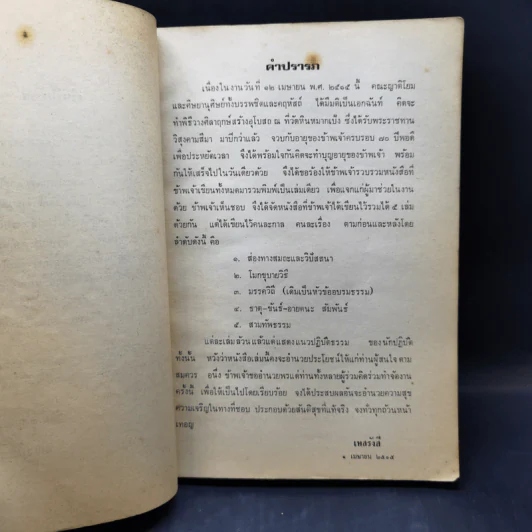 คำปรารภ
เนื่องในงานวันที่ ๑๒ เมษายน พ.ศ. ๒๕๑๕ นี้ คณะญาติโยม
และศิษยานุศิษย์ทั้งบรรพชิตและคฤหัสถ์ ได้มีมติเป็นเอกฉันท์ คิดจะ
ทำพิธีวางศิลาฤกษ์สร้างอุโบสถ ณ ที่วัดหินหมากเป้ง ซึ่งได้รับพระราชทาน
วิสุงคามสีมา มาปีกว่าแล้ว จวบกับอายุของข้าพเจ้าครบรอบ ๗๐ ปีพอดี
เพื่อประหยัดเวลา จึงได้พร้อมใจกันคิดจะทำบุญอายุของข้าพเจ้า พร้อม
กันให้เสร็จไปในวันเดียวด้วย จึงได้ขอร้องให้ข้าพเจ้ารวบรวมหนังสือที่
ข้าพเจ้าเขียนทั้งหมดมารวมพิมพ์เป็นเล่มเดียว เพื่อแจกแก่ผู้มาช่วยในงาน
ด้วย ข้าพเจ้าเห็นชอบ จึงได้จัดหนังสือที่ข้าพเจ้าได้เขียนไว้รวมได้ ๕ เล่ม
ด้วยกัน แต่ได้เขียนไว้คนละกาล คนละเรื่อง ตามก่อนและหลังโดย
ลำดับดังนี้ คือ
๑. ส่องทางสมถะและวิปัสสนา
๒. โมกขุบายวิธี
๓. มรรควิถี (เดิมเป็นหัวข้ออบรมธรรม)
๔. ธาตุ-ขันธ์-อายตนะ สัมพันธ์
๕. สามทัพธรรม
แต่ละเล่มล้วนแล้วแต่แสดงแนวปฏิบัติธรรม ของนักปฏิบัติ
ทั้งนั้น หวังว่าหนังสือเล่มนี้คงจะอำนวยประโยชน์ให้แก่ท่านผู้สนใจ ตาม
สมควร อนึ่ง ข้าพเจ้าขออำนวยพรแด่ท่านทั้งหลายผู้ร่วมคิดร่วมทำจัดงาน
ครั้งนี้ เพื่อให้เป็นไปโดยเรียบร้อย จงได้ประสบผลอันจะอำนวยความสุข
ความเจริญในทางที่ชอบ ประกอบด้วยสันติสุขที่แท้จริง จงทั่วทุกถ้วนหน้า
เทอญ
เทสรังสี
๑ เมษายน ๒๕๑๕